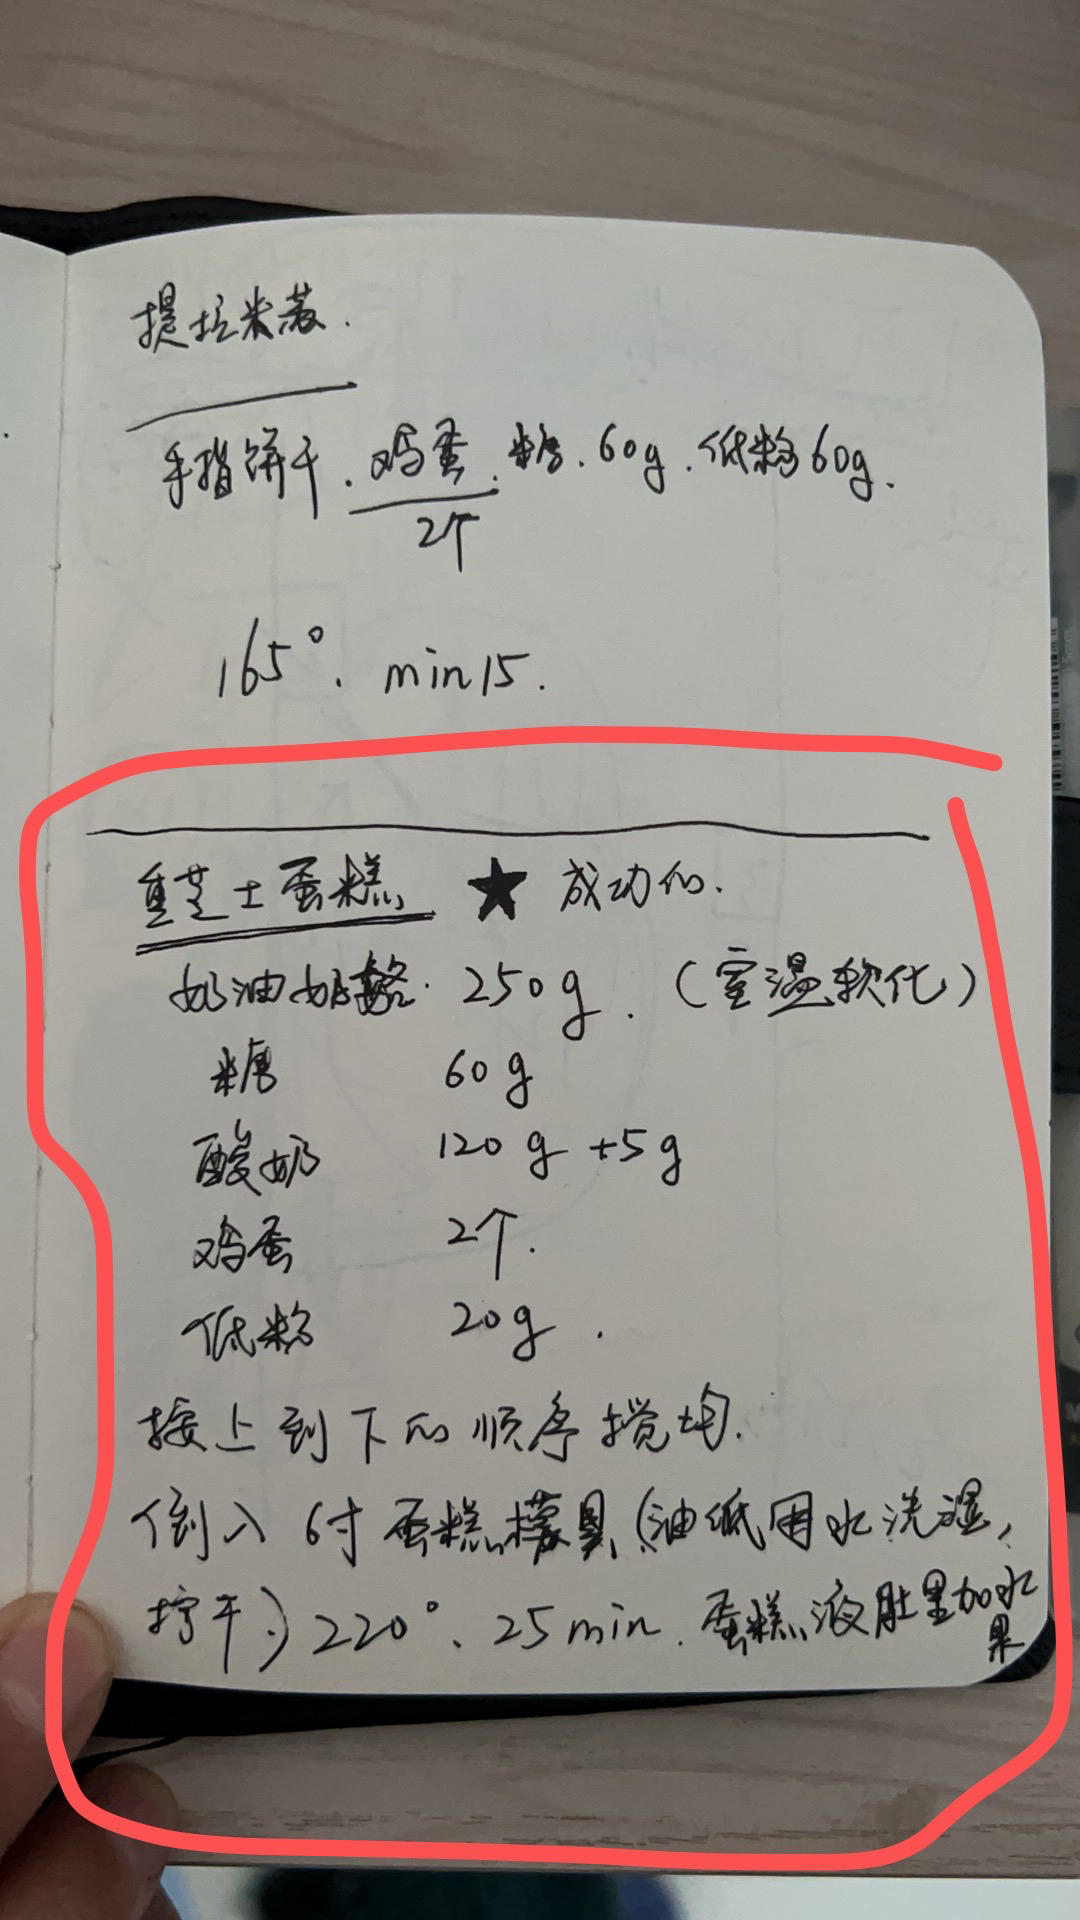 提拉米苏.
手指饼干.鸡蛋.糖.60g.低粉60g.
2个
165°. min15.
重芝士蛋糕 ★ 成功的.
奶油奶酪. 250g. (室温软化)
糖 60g
酸奶 120g +5g
鸡蛋 2个.
低粉 20g.
按上到下的顺序搅均.
倒入6寸蛋糕模具(油纸用水洗湿,
拧干.) 220°. 25min. 蛋糕液肚里加水
果